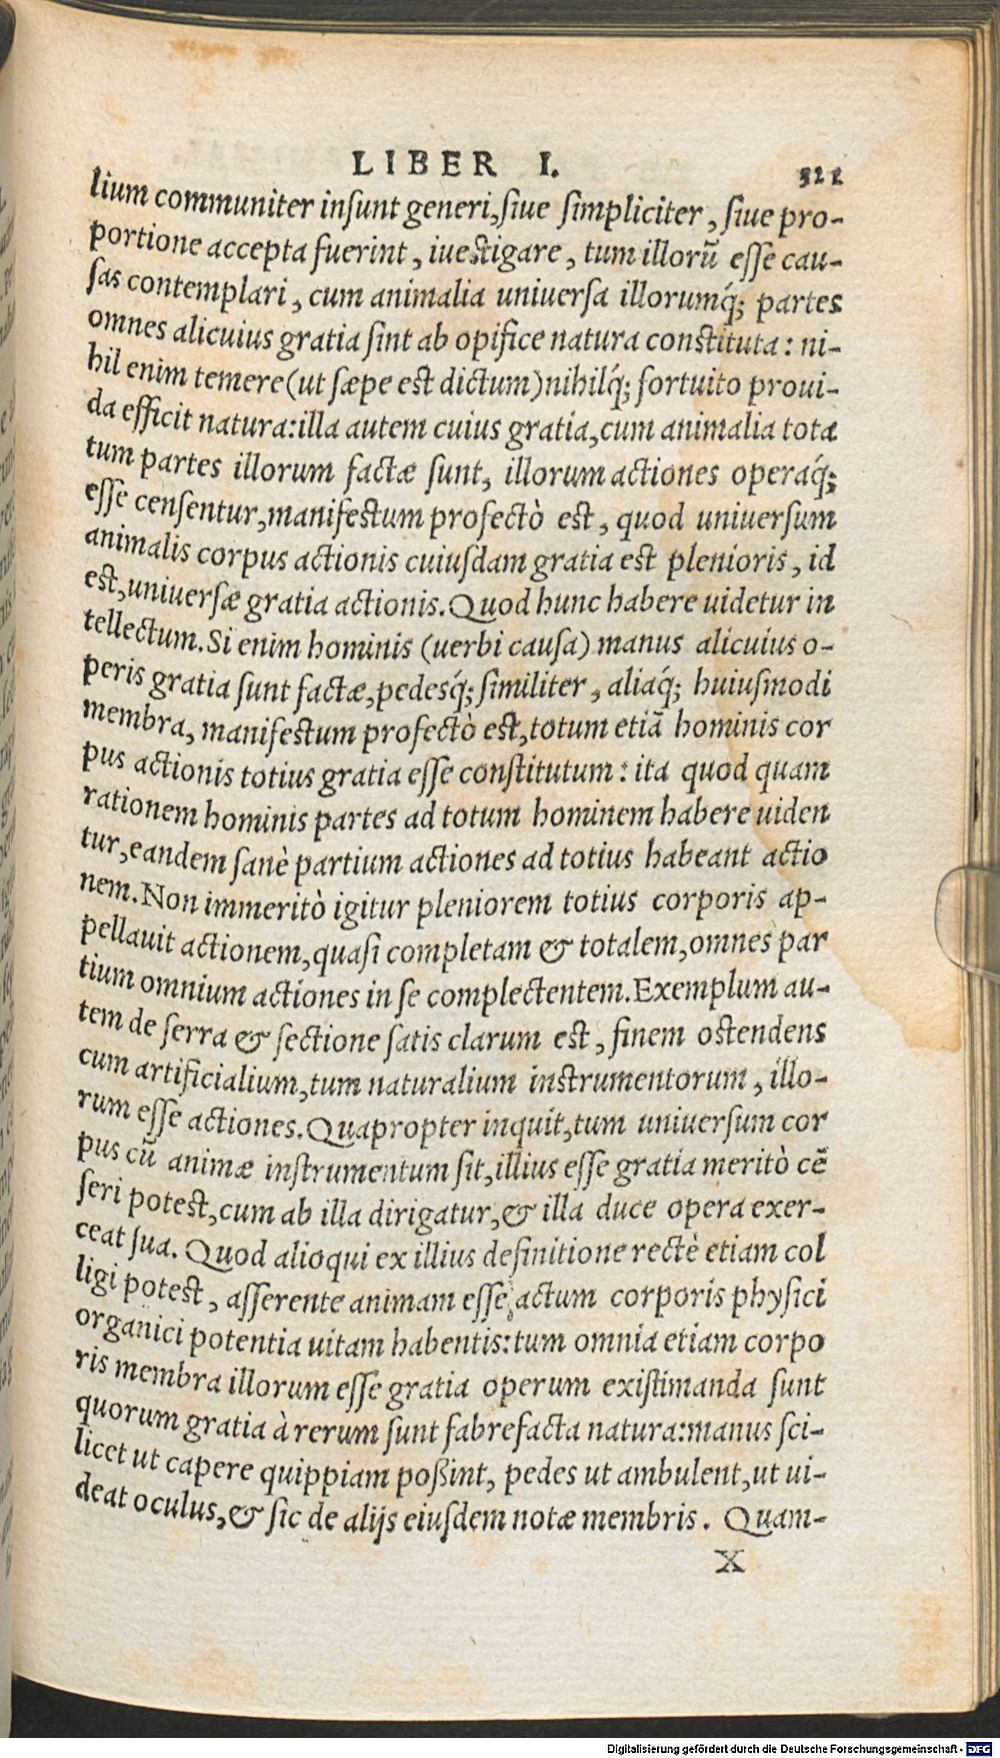 LIBER I. 321
lium communiter inſunt generi, ſiue ſimpliciter, ſiue pro-
portione accepta fuerint, iueſtigare, tum illorũ eſſe cau-
ſas contemplari, cum animalia uniuerſa illorumq́; partes
omnes alicuius gratia ſint ab opifice natura conſtituta: ni-
hil enim temere (ut ſæpe eſt dictum) nihilq́; fortuito proui-
da efficit natura: illa autem cuius gratia, cum animalia tota
tum partes illorum factæ ſunt, illorum actiones operaq́;
eſſe cenſentur, manifeſtum profectò eſt, quod uniuerſum
animalis corpus actionis cuiuſdam gratia eſt plenioris, id
eſt, uniuerſæ gratia actionis. Quod hunc habere uidetur in
tellectum. Si enim hominis (uerbi cauſa) manus alicuius o-
peris gratia ſunt factæ, pedesq́; ſimiliter, aliaq́; huiuſmodi
membra, manifeſtum profectò eſt, totum etiã hominis cor
pus actionis totius gratia eſſe conſtitutum: ita quod quam
rationem hominis partes ad totum hominem habere uiden
tur, eandem ſanè partium actiones ad totius habeant actio
nem. Non immeritò igitur pleniorem totius corporis ap-
pellauit actionem, quaſi completam & totalem, omnes par
tium omnium actiones in ſe complectentem. Exemplum au-
tem de ſerra & ſectione ſatis clarum eſt, finem oſtendens
cum artificialium, tum naturalium inſtrumentorum, illo-
rum eſſe actiones. Quapropter inquit, tum uniuerſum cor
pus cũ animæ inſtrumentum ſit, illius eſſe gratia meritò cẽ
ſeri poteſt, cum ab illa dirigatur, & illa duce opera exer-
ceat ſua. Quod alioqui ex illius definitione rectè etiam col
ligi poteſt, aſſerente animam eſſe, actum corporis phyſici
organici potentia uitam habentis: tum omnia etiam corpo
ris membra illorum eſſe gratia operum exiſtimanda ſunt
quorum gratia à rerum ſunt fabrefacta natura: manus ſci-
licet ut capere quippiam poßint, pedes ut ambulent, ut ui-
deat oculus, & ſic de alijs eiuſdem notæ membris. Quam-
X
Digitalisierung gefördert durch die Deutsche Forschungsgemeinschaft - DFG